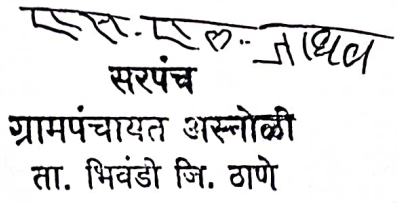 एस. एल. जाधव
सरपंच
ग्रामपंचायत अस्नोळी
ता. भिवंडी जि. ठाणे